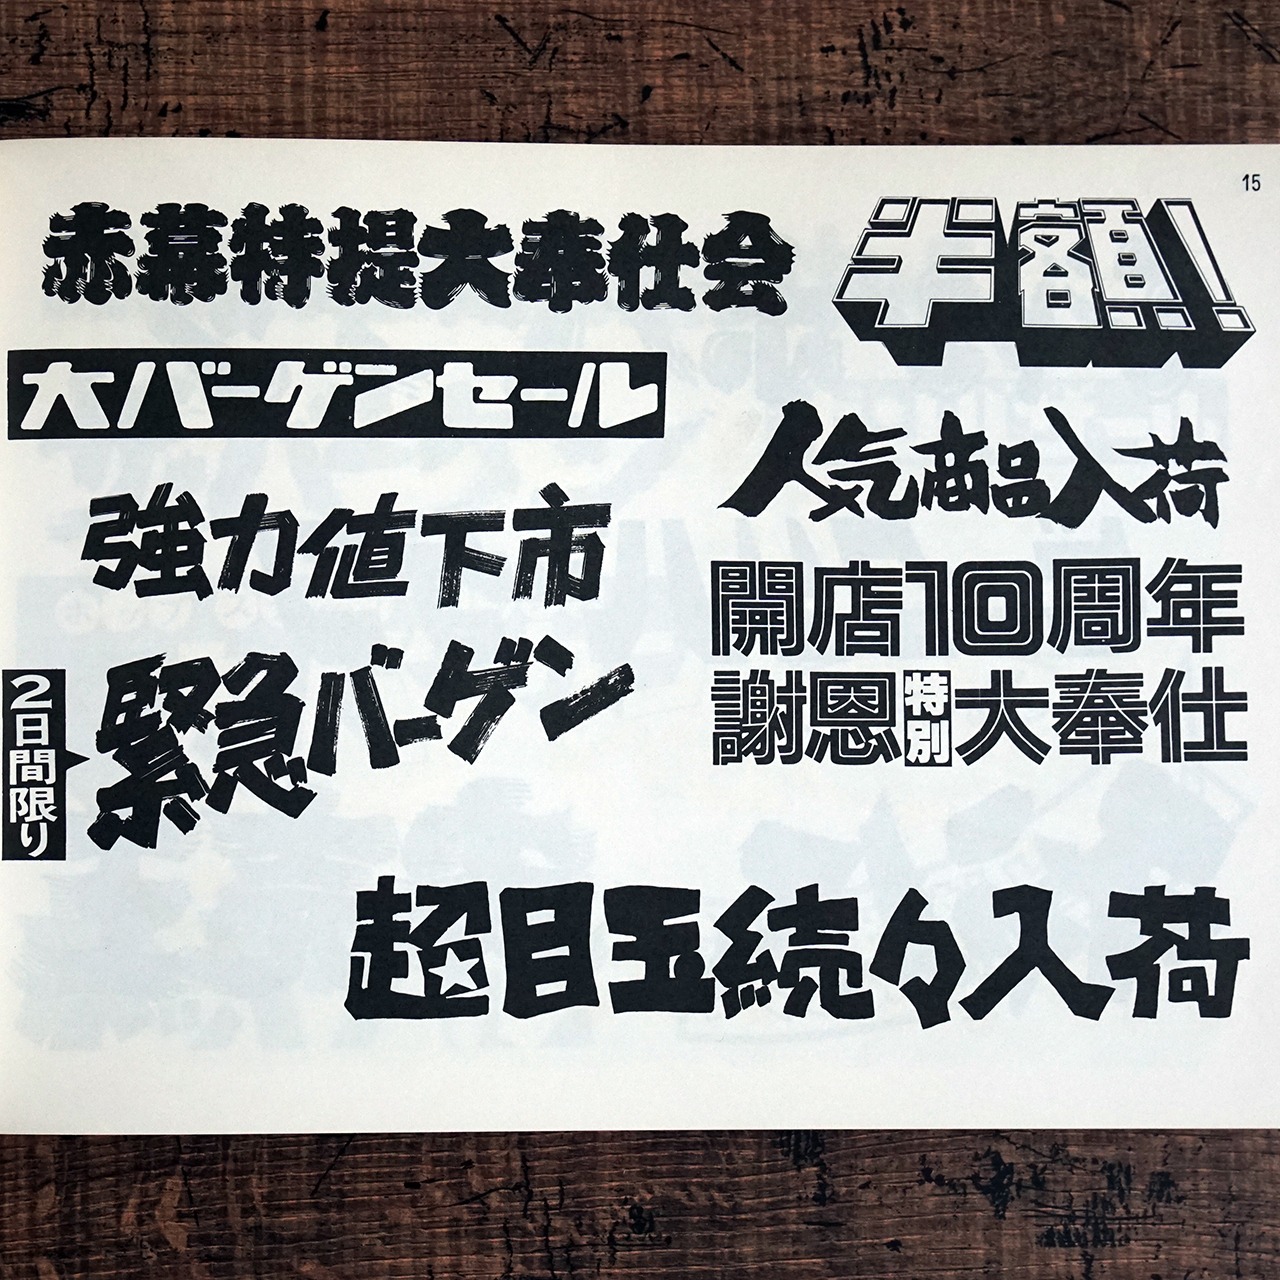 15
赤幕特提大奉仕会
半額!!
大バーゲンセール
人気商品入荷
強力値下市
開店10周年
謝恩特別大奉仕
2日間限り
緊急バーゲン
超目玉続々入荷